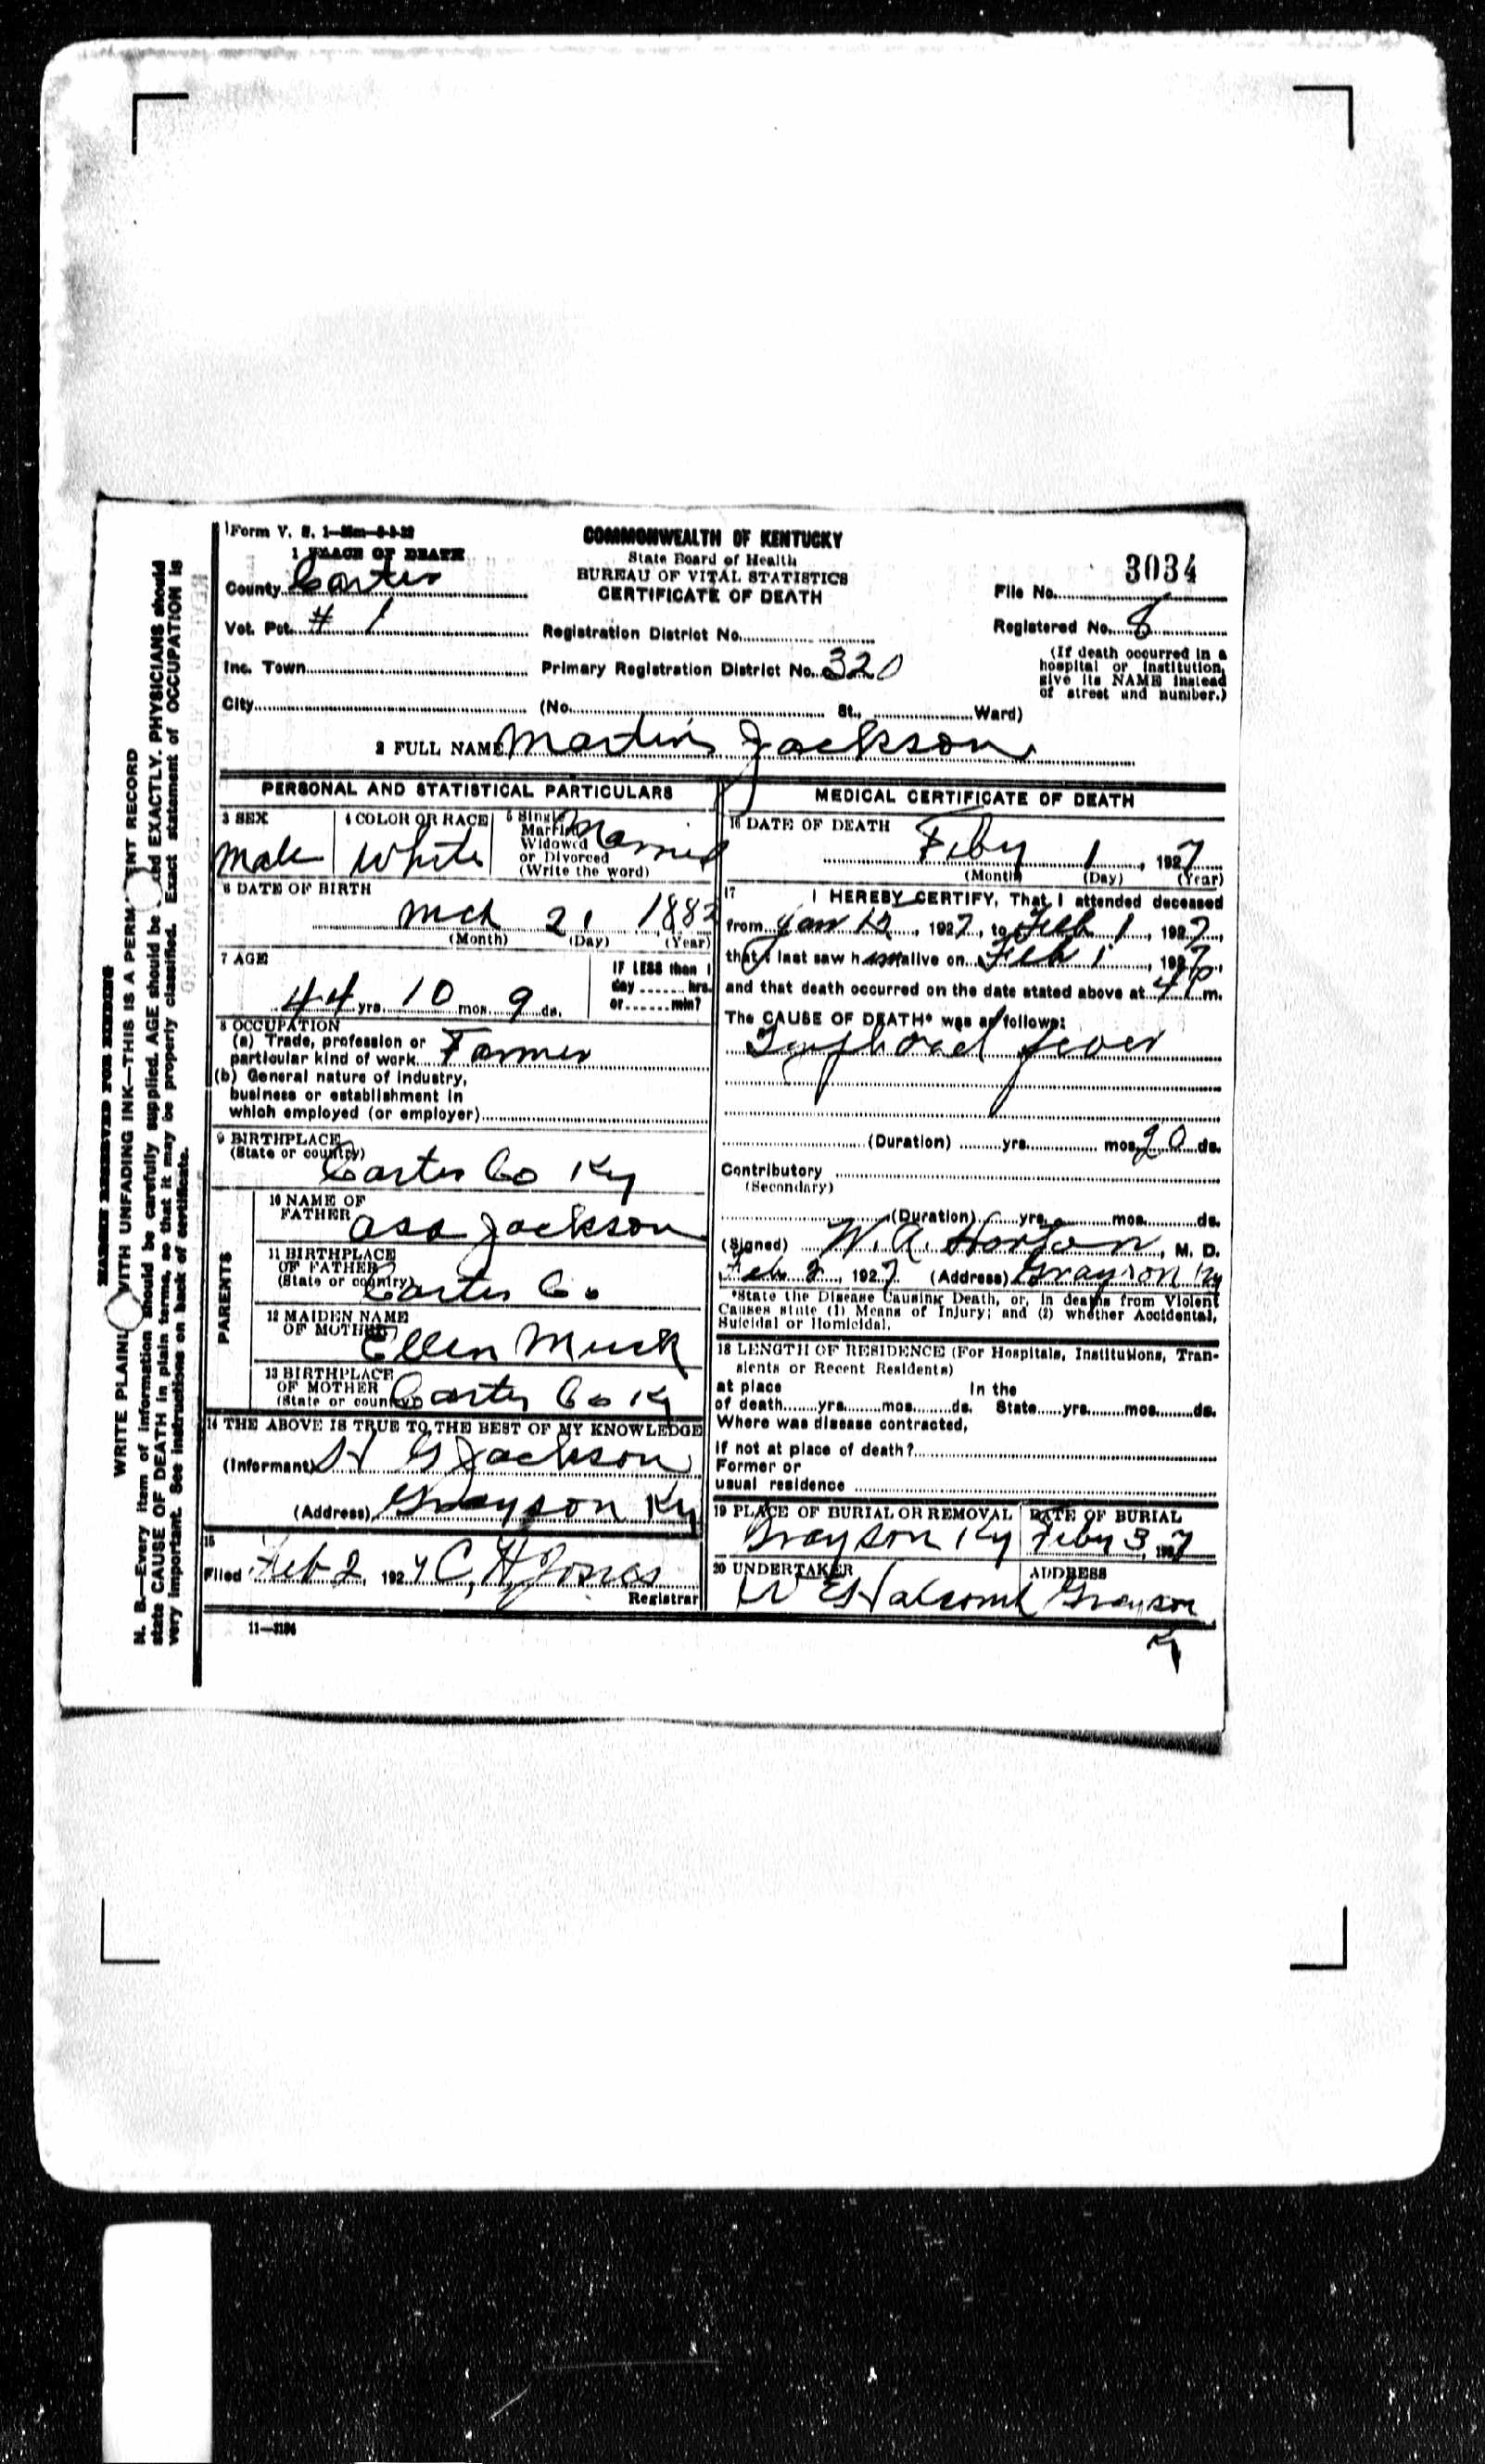 Form V. S. 1
1 PLACE OF DEATH
COMMONWEALTH OF KENTUCKY
State Board of Health
BUREAU OF VITAL STATISTICS
CERTIFICATE OF DEATH
3034
File No.
County Carter
Vot. Pct. # 1
Registration District No.
Registered No. 8
Inc. Town
Primary Registration District No. 320
(If death occurred in a
hospital or institution,
give its NAME instead
of street and number.)
City
(No. St., Ward)
2 FULL NAME Martin Jackson
PERSONAL AND STATISTICAL PARTICULARS
3 SEX
Male
4 COLOR OR RACE
White
5 Single
Married
Widowed
or Divorced
(Write the word)
Married
6 DATE OF BIRTH
Mch 21 1882
(Month) (Day) (Year)
7 AGE
44 yrs. 10 mos. 9 ds.
IF LESS than 1
day hrs.
or min?
8 OCCUPATION
(a) Trade, profession or
particular kind of work Farmer
(b) General nature of industry,
business or establishment in
which employed (or employer)
9 BIRTHPLACE
(State or country)
Carter Co Ky
PARENTS
10 NAME OF
FATHER Asa Jackson
11 BIRTHPLACE
OF FATHER
(State or country)
Carter Co
12 MAIDEN NAME
OF MOTHER
Ellen Musk
13 BIRTHPLACE
OF MOTHER
(State or country) Carter Co Ky
14 THE ABOVE IS TRUE TO THE BEST OF MY KNOWLEDGE
(Informant) H G Jackson
(Address) Grayson Ky
15
Filed Feb 2, 1927 C. H. Jones
Registrar
11-3184
MEDICAL CERTIFICATE OF DEATH
16 DATE OF DEATH
Feby 1, 1927
(Month) (Day) (Year)
17 I HEREBY CERTIFY, That I attended deceased
from Jan 12, 1927, to Feb 1, 1927,
that I last saw him alive on Feb 1, 1927,
and that death occurred on the date stated above at 4 P m.
The CAUSE OF DEATH* was as follows:
Typhoid fever
(Duration) yrs. mos. 20 ds.
Contributory
(Secondary)
(Duration) yrs. mos. ds.
(Signed) W. A. Horton, M. D.
Feb 2, 1927 (Address) Grayson Ky
*State the Disease Causing Death, or, in deaths from Violent
Causes state (1) Means of Injury; and (2) whether Accidental,
Suicidal or Homicidal.
18 LENGTH OF RESIDENCE (For Hospitals, Institutions, Tran-
sients or Recent Residents)
at place In the
of death yrs. mos. ds. State yrs. mos. ds.
Where was disease contracted,
if not at place of death?
Former or
usual residence
19 PLACE OF BURIAL OR REMOVAL
Grayson Ky
DATE OF BURIAL
Feby 3, 1927
20 UNDERTAKER
W E Halcomb
ADDRESS
Grayson
Ky
MARGIN RESERVED FOR BINDING
WRITE PLAINL WITH UNFADING INK—THIS IS A PERM ENT RECORD
N. B.—Every item of information should be carefully supplied. AGE should be ed EXACTLY. PHYSICIANS should
state CAUSE OF DEATH in plain terms, so that it may be properly classified. Exact statement of OCCUPATION is
very important. See instructions on back of certificate.